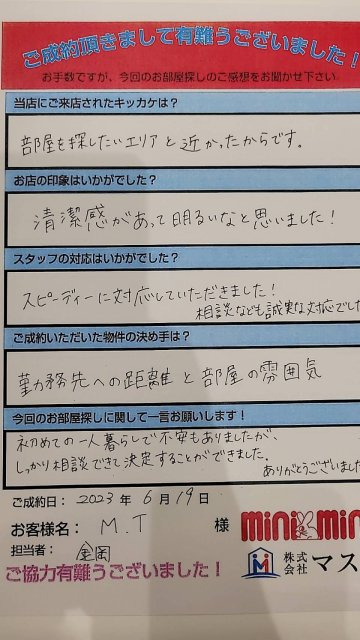 ご成約頂きまして有難うございました！
お手数ですが、今回のお部屋探しのご感想をお聞かせ下さい
当店にご来店されたキッカケは？
部屋を探したいエリアと近かったからです。
お店の印象はいかがでした？
清潔感があって明るいなと思いました！
スタッフの対応はいかがでした？
スピーディーに対応していただきました！
相談なども誠実な対応でした
ご成約いただいた物件の決め手は？
勤務先への距離と部屋の雰囲気
今回のお部屋探しに関して一言お願いします！
初めての一人暮らしで不安もありましたが、
しっかり相談できて決定することができました。
ありがとうございました
ご成約日： 2023 年 6 月 19 日
お客様名： M.T 様
mini mini
担当者： 金岡
株式会社 マス
ご協力有難うございました！